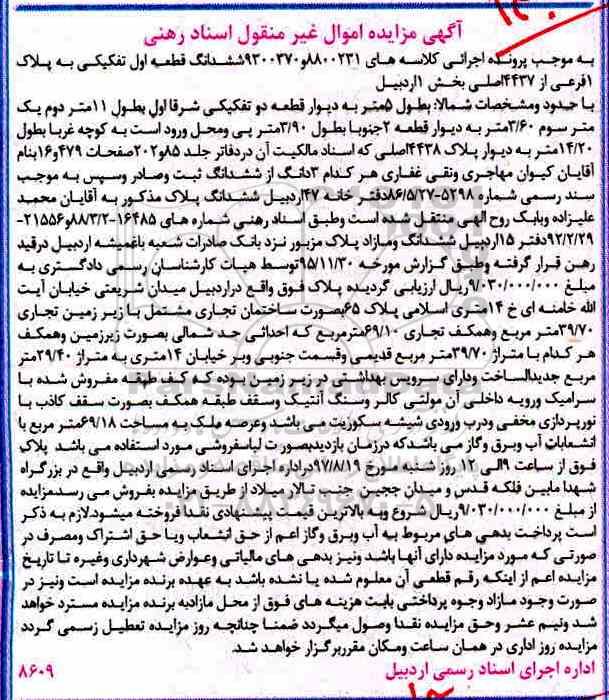 آگهی مزایده اموال غیر منقول اسناد رهنی
به موجب پرونده اجرائی کلاسه های ۸۸۰۰۲۳۱و۹۳۰۰۳۷۰ششدانگ قطعه اول تفکیکی به پلاک
۱فرعی از ۴۴۳۷اصلی بخش ۱اردبیل
با حدود ومشخصات شمالا: بطول ۵متر به دیوار قطعه دو تفکیکی شرقا اول بطول ۱۱متر دوم یک
متر سوم ۳/۶۰متر به دیوار قطعه ۲جنوبا بطول ۳/۹۰متر پی ومحل ورود است به کوچه غربا بطول
۱۴/۲۰متر به دیوار پلاک ۴۴۳۸اصلی که اسناد مالکیت آن دردفاتر جلد ۸۵و۲۰۲صفحات ۴۷۹و۱۶بنام
آقایان کیوان مهاجری ونقی غفاری هر کدام ۳دانگ از ششدانگ ثبت وصادر وسپس به موجب
سند رسمی شماره ۵۲۹۸-۸۶/۵/۲۷دفتر خانه ۴۷اردبیل ششدانگ پلاک مذکور به آقایان محمد
علیزاده وبابک روح الهی منتقل شده است وطبق اسناد رهنی شماره های ۱۶۴۸۵-۸۸/۳/۲و۲۱۵۵۶-
۹۲/۲/۲۹دفتر ۱۵اردبیل ششدانگ ومازاد پلاک مزبور نزد بانک صادرات شعبه باغمیشه اردبیل درقید
رهن قرار گرفته وطبق گزارش مورخه ۹۵/۱۱/۳۰توسط هیات کارشناسان رسمی دادگستری به
مبلغ ۹/۰۳۰/۰۰۰/۰۰۰ریال ارزیابی گردیده پلاک فوق واقع دراردبیل میدان شریعتی خیابان آیت
الله خامنه ای خ ۱۴متری اسلامی پلاک ۶۵بصورت ساختمان تجاری مشتمل با زیر زمین تجاری
۳۹/۷۰متر مربع وهمکف تجاری ۶۹/۱۰مترمربع که احداثی حد شمالی بصورت زیرزمین وهمکف
هر کدام با متراژ ۳۹/۷۰متر مربع قدیمی وقسمت جنوبی وبر خیابان ۱۴متری به متراژ ۳۹/۴۰متر
مربع جدیدالساخت ودارای سرویس بهداشتی در زیر زمین بوده که کف طبقه مفروش شده با
سرامیک ورویه داخلی آن مولتی کالر وسنگ آنتیک وسقف طبقه همکف بصورت سقف کاذب با
نورپردازی مخفی ودرب ورودی شیشه سکوریت می باشد وعرصه ملک به مساحت ۶۹/۱۸متر مربع با
انشعابات آب وبرق وگاز می باشدکه درزمان بازدیدبصورت لباسفروشی مورد استفاده می باشد پلاک
فوق از ساعت ۹الی ۱۲ روز شنبه مورخ ۹۷/۸/۱۹دراداره اجرای اسناد رسمی اردبیل واقع در بزرگراه
شهدا مابین فلکه قدس و میدان ججین جنب تالار میلاد از طریق مزایده بفروش می رسدمزایده
از مبلغ ۹/۰۳۰/۰۰۰/۰۰۰ریال شروع وبه بالاترین قیمت پیشنهادی نقدا فروخته میشود.لازم به ذکر
است پرداخت بدهی های مربوط به آب وبرق وگاز اعم از حق انشعاب ویا حق اشتراک ومصرف در
صورتی که مورد مزایده دارای آنها باشد ونیز بدهی های مالیاتی وعوارض شهرداری وغیره تا تاریخ
مزایده اعم از اینکه رقم قطعی آن معلوم شده یا نشده باشد به عهده برنده مزایده است ونیز در
صورت وجود مازاد وجوه پرداختی بابت هزینه های فوق از محل مازادبه برنده مزایده مسترد خواهد
شد ونیم عشر وحق مزایده نقدا وصول میگردد ضمنا چنانچه روز مزایده تعطیل رسمی گردد
مزایده روز اداری در همان ساعت ومکان مقرربرگزار خواهد شد.
اداره اجرای اسناد رسمی اردبیل
۸۶۰۹